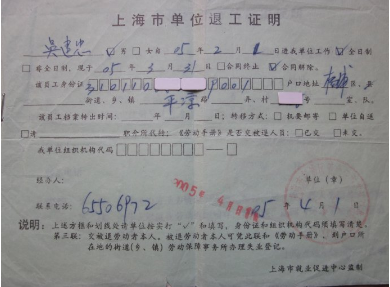 上海市单位退工证明
☑男□女自05年2月1日进我单位工作☑全日制
□非全日制,现于05年3月31日□合同终止☑合同解除。
该员工身份证310110 9001 户口地址
街道、乡、镇 平凉路 弄、村 号 室、队。
该员工档案转出时间: 年 月 日;转移方式:□机要邮寄 □单位自送
□请 职介所收档;《劳动手册》是否交被退人员:□已交 □未交。
我单位组织机构代码□□□□□□□□—□
经办人: 单位(章)
联系电话:65506972 05年4月1日
说明:1、上述方框和划线处请单位按实打“√”和填写,身份证和组织机构代码须填写清楚。
第三联:交被退劳动者本人。被退劳动者可凭此联和《劳动手册》,到户口所
在地的街道(乡、镇)劳动保障事务所办理失业登记。
上海市就业促进中心监制